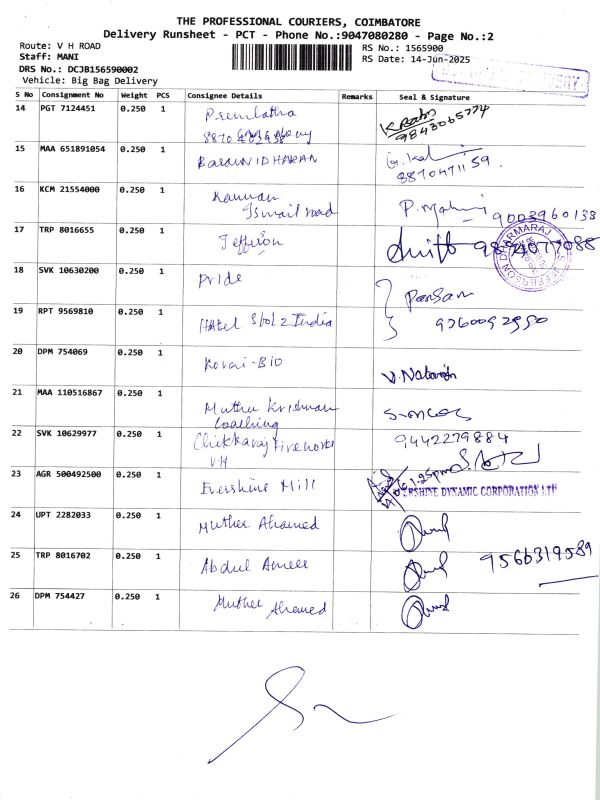 THE PROFESSIONAL COURIERS, COIMBATORE
Delivery Runsheet - PCT - Phone No.:9047080280 - Page No.:2
Route: V H ROAD
RS No.: 1565900
Staff: MANI
RS Date: 14-Jun-2025
DRS No.: DCJB156590002
Vehicle: Big Bag Delivery
DELIVERY
S No Consignment No Weight PCS Consignee Details Remarks Seal & Signature
14 PGT 7124451 0.250 1 Premlatha
9843065774
15 MAA 651891054 0.250 1
16 KCM 21554000 0.250 1 Kannan
Ismail road
9003960138
17 TRP 8016655 0.250 1 Jefferson
DHARMARAJ
18 SVK 10630200 0.250 1 Pride
19 RPT 9569810 0.250 1 Hotel India
20 DPM 754069 0.250 1 Kovai-Bio
21 MAA 110516867 0.250 1 Muthu Krishnan
Coaching
22 SVK 10629977 0.250 1
VH
9442279884
23 AGR 500492500 0.250 1 Evershine Mill
1.25pm
ERSHINE DYNAMIC CORPORATION LTD
24 UPT 2282033 0.250 1 Muther Ahamed
25 TRP 8016702 0.250 1 Abdul
9566319589
26 DPM 754427 0.250 1 Muther Ahamed